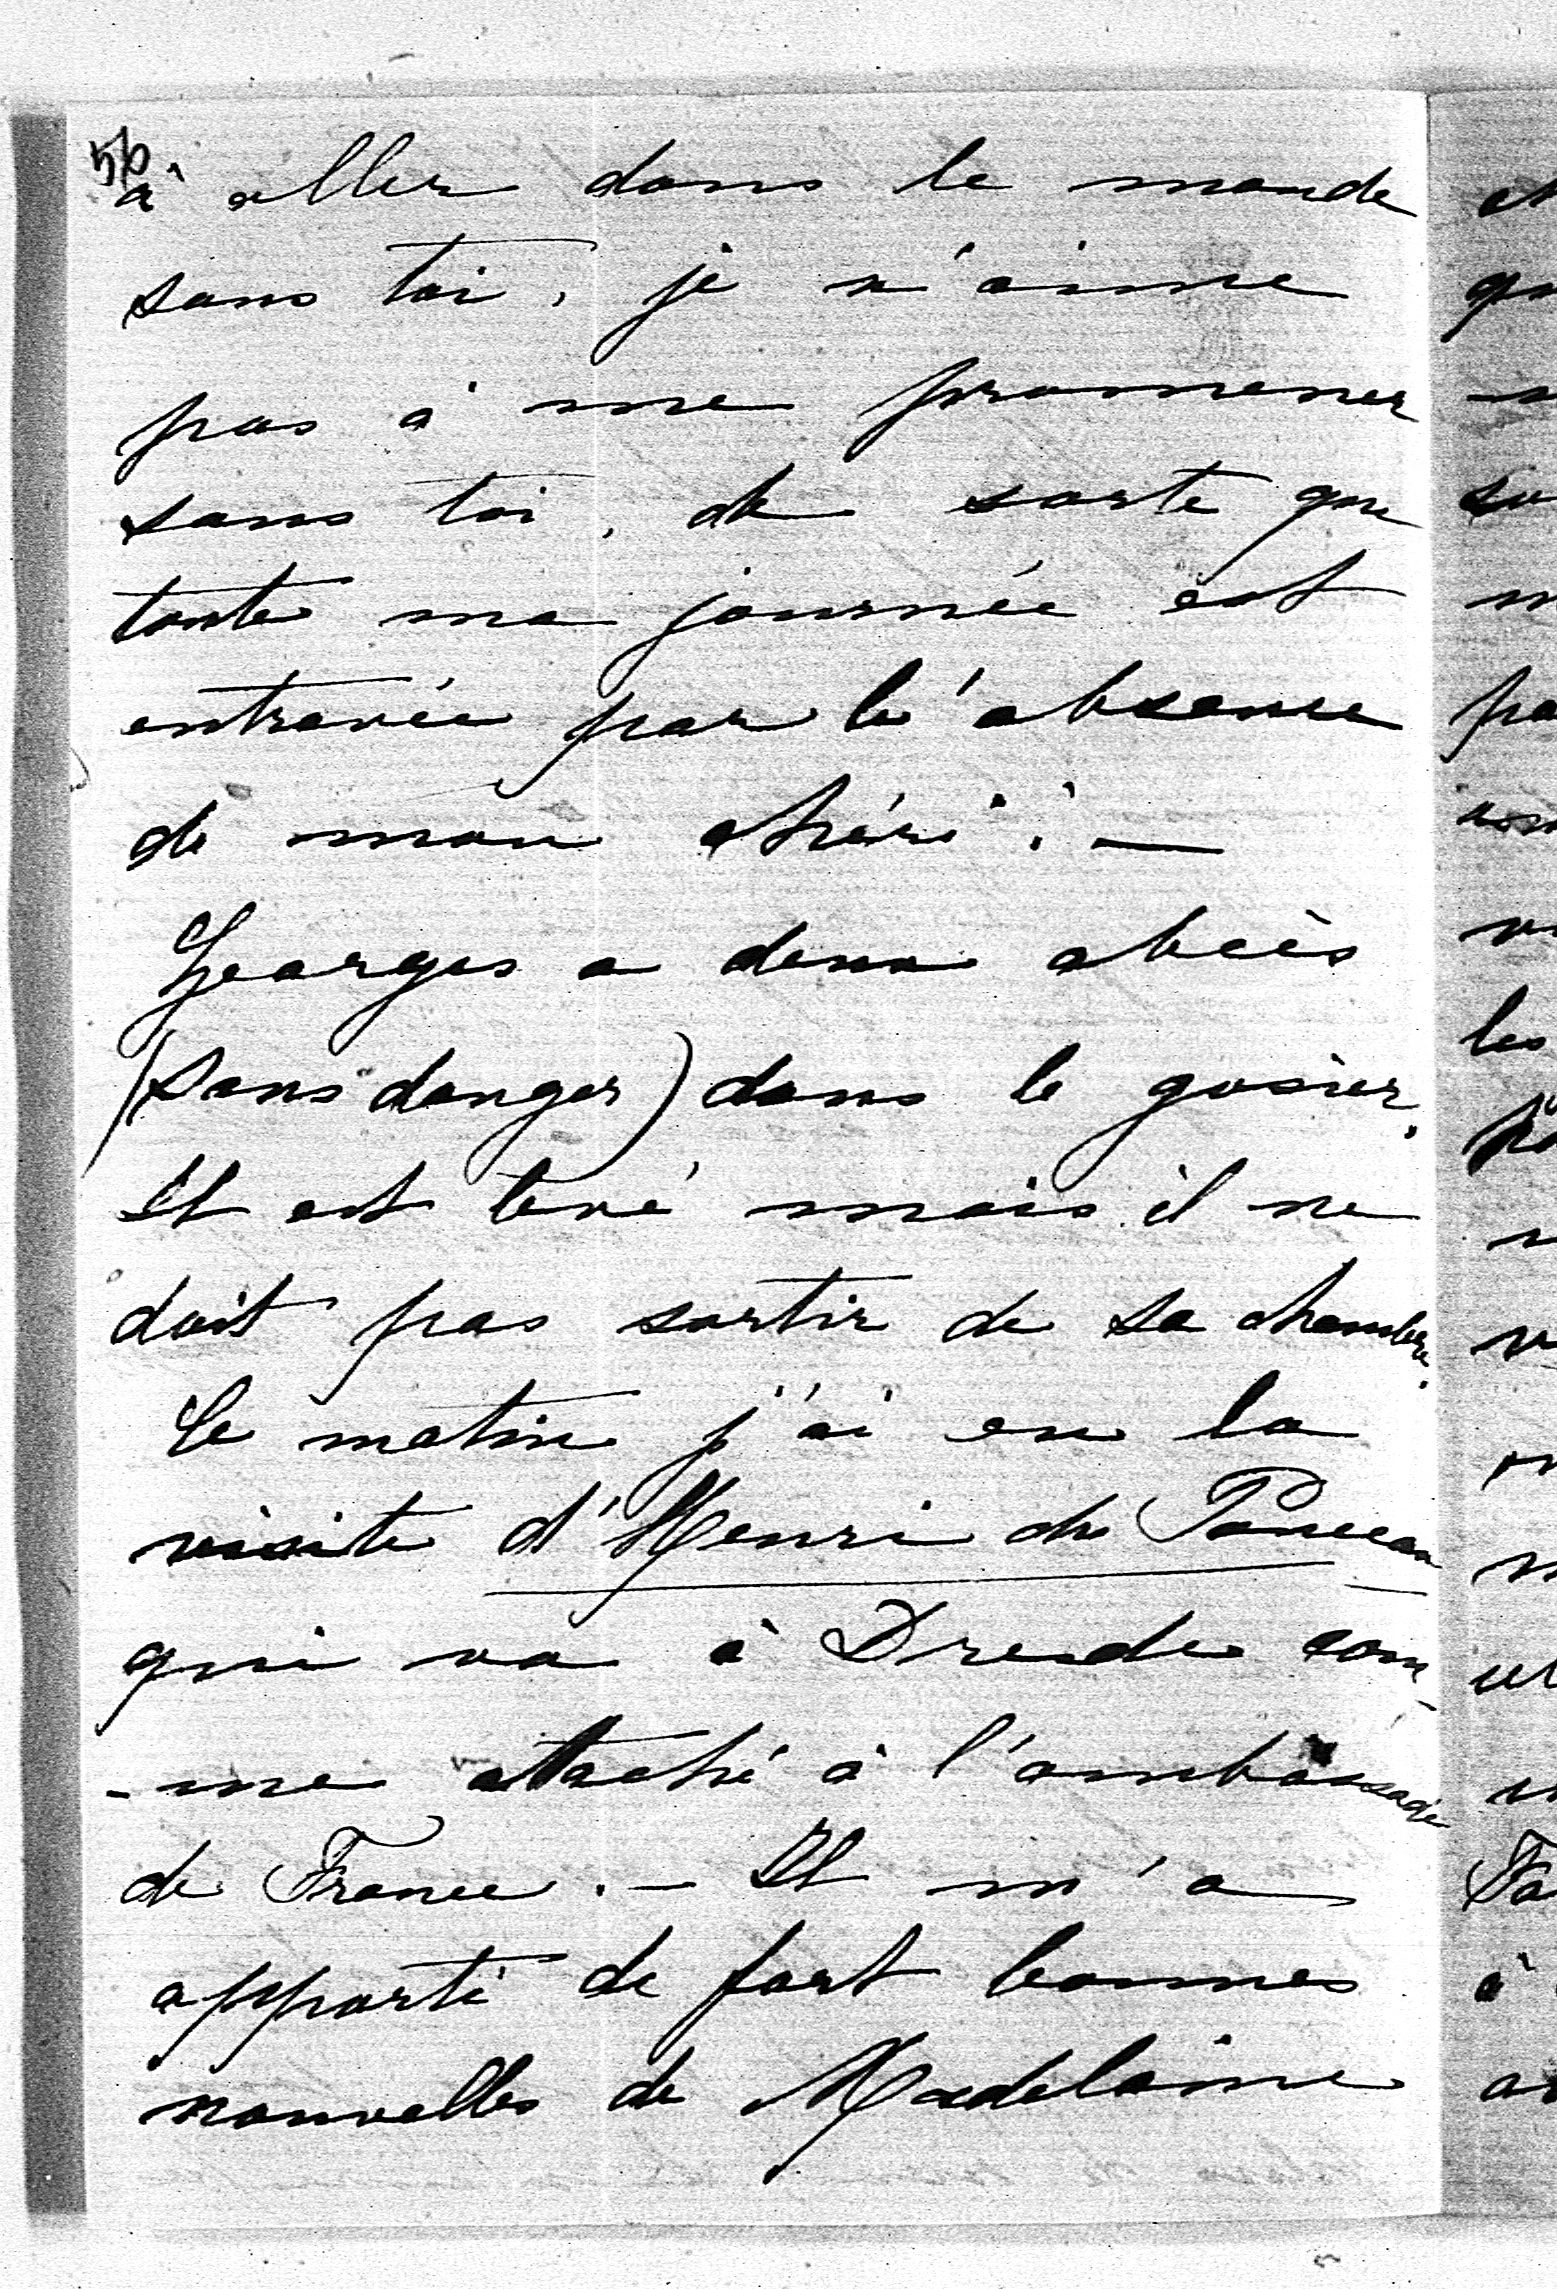 56
à aller dans le monde
sans toi, je n'aime
pas à me promener
sans toi, de sorte que
toute ma journée est
entravée par l'absence
de mon chéri. —
Georges a deux abcès
(sans danger) dans le gosier.
Il est levé mais il ne
doit pas sortir de sa chambre.
Ce matin j'ai eu la
visite d'Henri de
qui va à Dresde com-
-me attaché à l'ambassade
de France. — Il m'a
apporté de fort bonnes
nouvelles de Madelaine